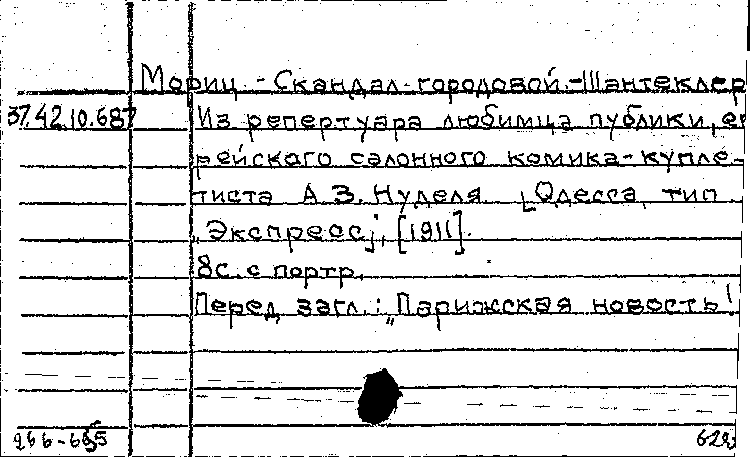 Мориц. - Скандал-городовой.-Шантеклер
37.42.10.687 Из репертуара любимца публики, ев
рейского салонного комика-купле-
тиста А.З. Нуделя. [Одесса, тип.
„Экспресс"], [1911].
8с. с портр.
Перед загл.: „Парижская новость!
266-685